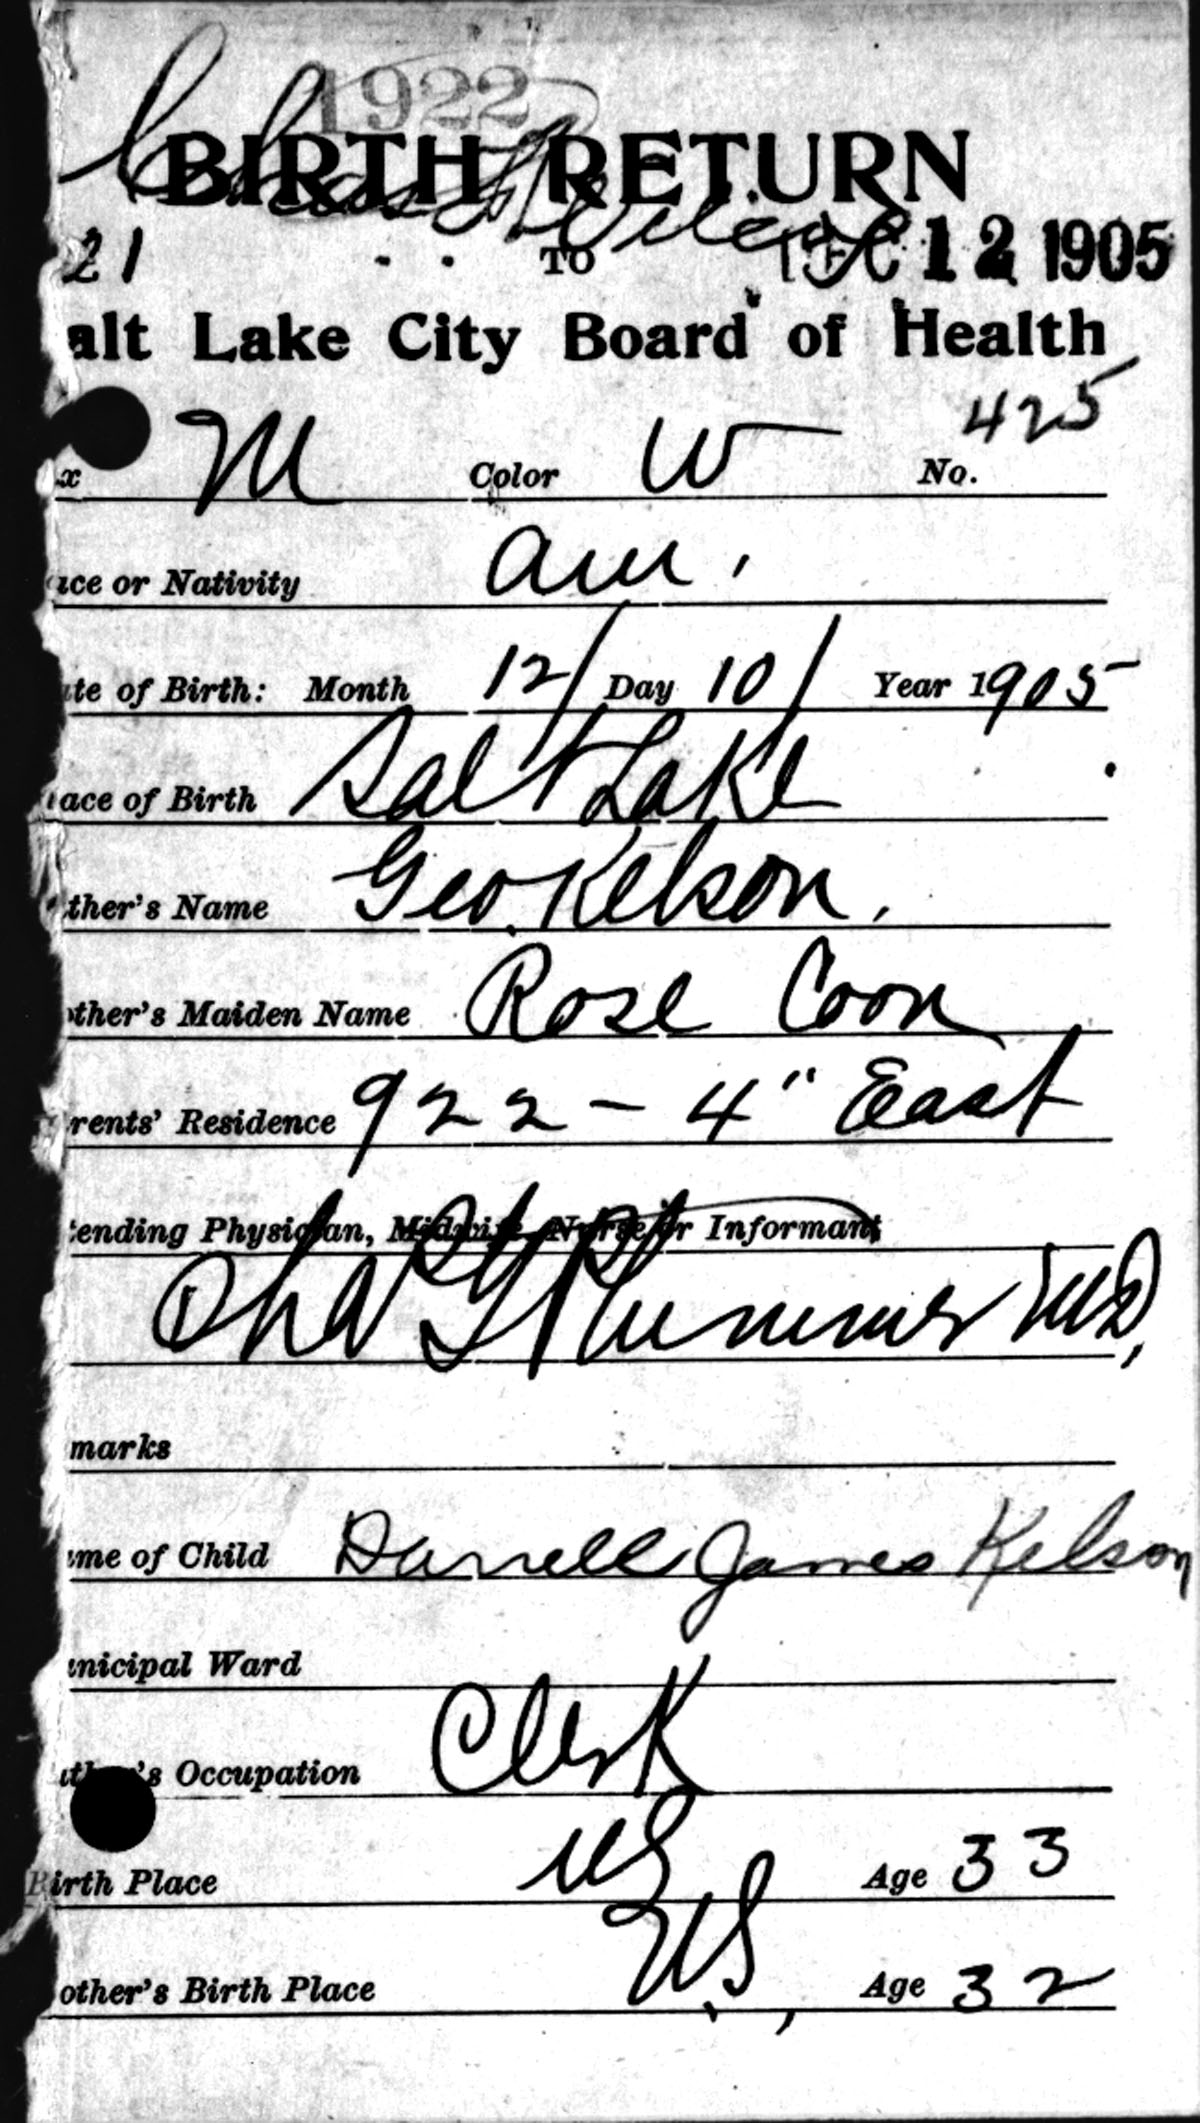 1922
BIRTH RETURN
21 TO DEC 12 1905
alt Lake City Board of Health
425
x M Color W No.
ace or Nativity Am.
ate of Birth: Month 12/ Day 10/ Year 1905
ace of Birth Salt Lake
ther's Name Geo. Kelson.
other's Maiden Name Rose Coon
rents' Residence 922 - 4" East
tending Physician, Midwife, Nurse or Informant
Chas G Plummer MD,
marks
me of Child Darrell James Kelson
unicipal Ward
ather's Occupation Clerk
Birth Place US Age 33
other's Birth Place U.S., Age 32